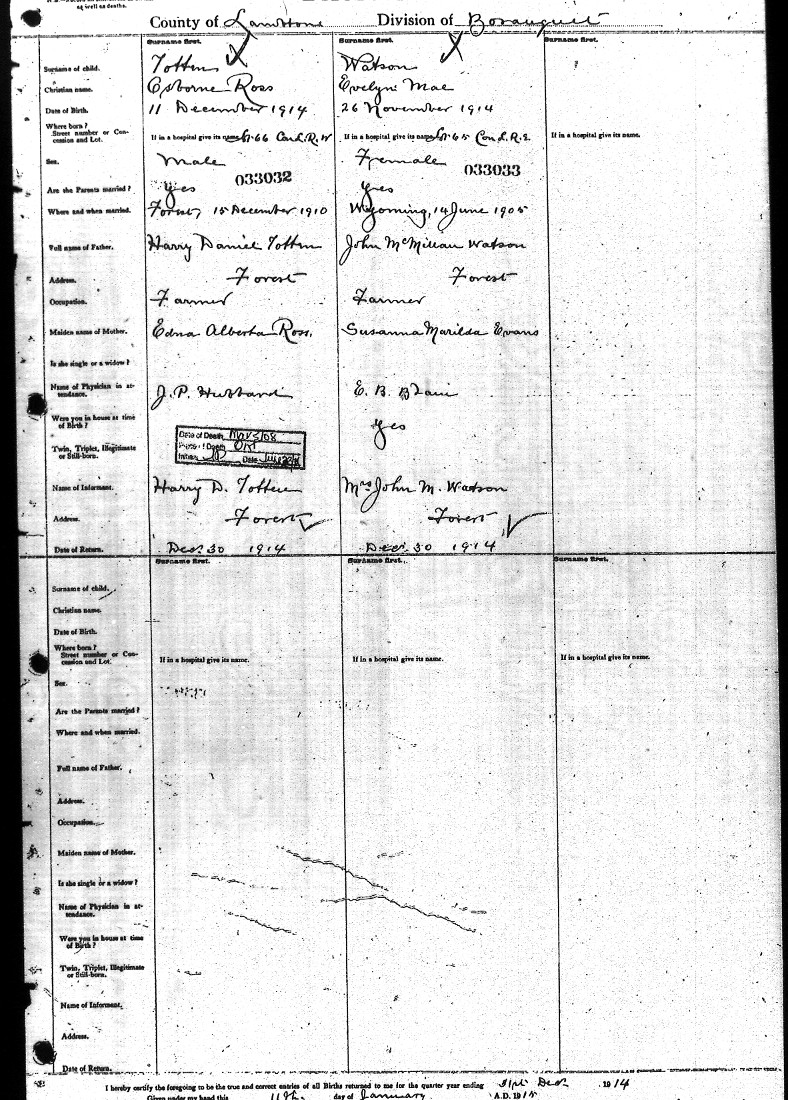 as well as deaths.
County of Lambton Division of Bosanquet
Surname first. Surname first. Surname first.
Surname of child. Totten X Watson X
Christian name. Osborne Ross Evelyn Mae
Date of Birth. 11 December 1914 26 November 1914
Where born?
Street number or Concession and Lot. If in a hospital give its name. Lot 66 Con L.R.W If in a hospital give its name. Lot 65 Con L.R.E. If in a hospital give its name.
Sex. Male Female
033032 033033
Are the Parents married? Yes Yes
Where and when married. Forest, 15 December 1910 Wyoming, 14 June 1905
Full name of Father. Harry Daniel Totten John McMillan Watson
Address. Forest Forest
Occupation. Farmer Farmer
Maiden name of Mother. Edna Alberta Ross. Susanna Marilda Evans
Is she single or a widow?
Name of Physician in attendance. J. P. Hubbard E. B. Blain
Were you in house at time of Birth? Yes
Twin, Triplet, Illegitimate or Still-born.
Date of Death
Place of Death ONT
Initials Date
Name of Informant. Harry D. Totten Mrs John M. Watson
Address. Forest Forest
Date of Return. Dec. 30 1914 Dec. 30 1914
Surname first. Surname first. Surname first.
Surname of child.
Christian name.
Date of Birth.
Where born?
Street number or Concession and Lot. If in a hospital give its name. If in a hospital give its name. If in a hospital give its name.
Sex.
Are the Parents married?
Where and when married.
Full name of Father.
Address.
Occupation.
Maiden name of Mother.
Is she single or a widow?
Name of Physician in attendance.
Were you in house at time of Birth?
Twin, Triplet, Illegitimate or Still-born.
Name of Informant.
Address.
Date of Return.
I hereby certify the foregoing to be the true and correct entries of all Births returned to me for the quarter year ending 31st Dec. 1914
Given under my hand this 11th day of January A.D. 1915